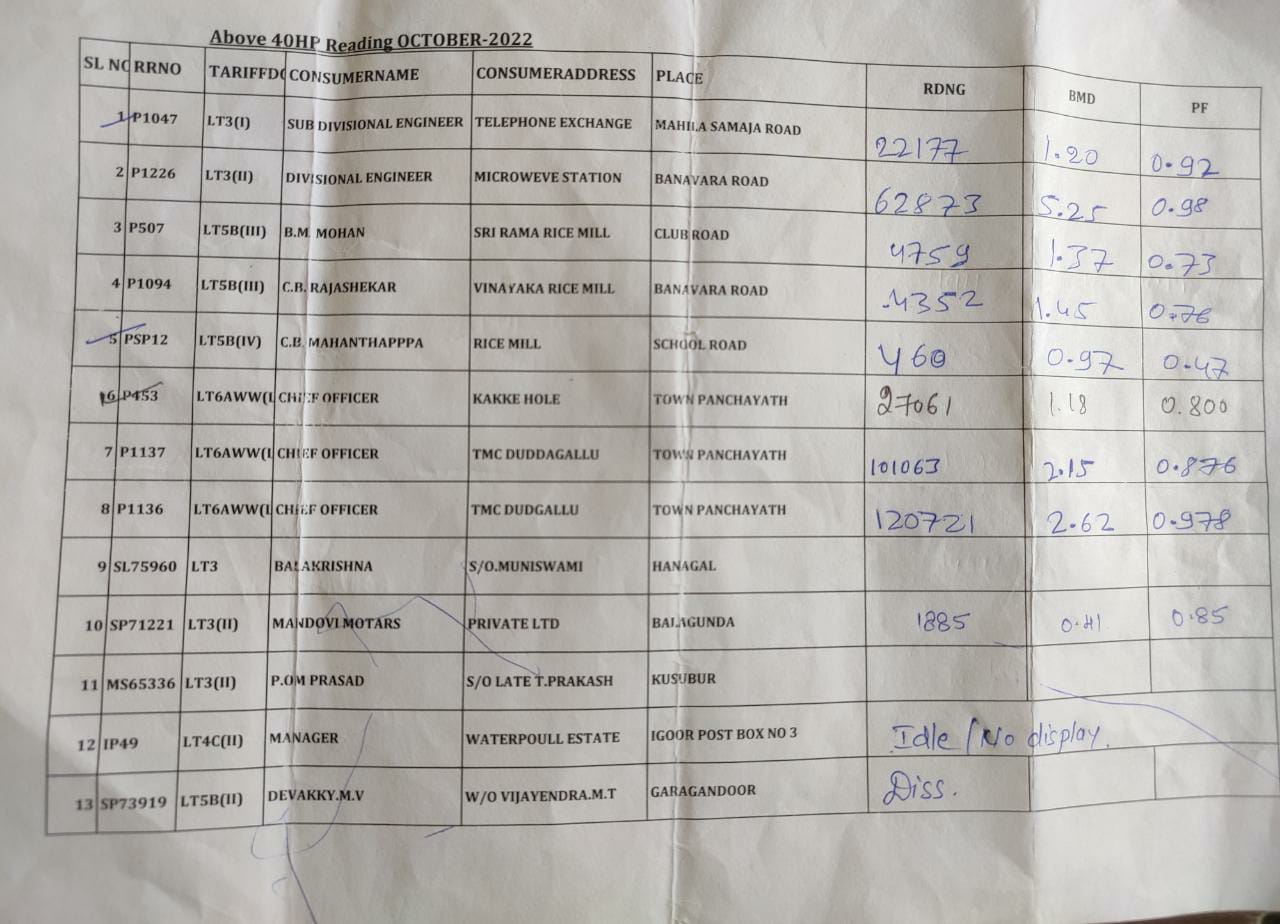 Above 40HP Reading OCTOBER-2022
SL NO RRNO TARIFFD CONSUMERNAME CONSUMERADDRESS PLACE RDNG BMD PF
1 P1047 LT3(I) SUB DIVISIONAL ENGINEER TELEPHONE EXCHANGE MAHILA SAMAJA ROAD 22177 1.20 0.92
2 P1226 LT3(II) DIVISIONAL ENGINEER MICROWEVE STATION BANAVARA ROAD 62873 5.25 0.98
3 P507 LT5B(III) B.M. MOHAN SRI RAMA RICE MILL CLUB ROAD 4759 1.37 0.73
4 P1094 LT5B(III) C.B. RAJASHEKAR VINAYAKA RICE MILL BANAVARA ROAD 4352 1.45 0.76
5 PSP12 LT5B(IV) C.B. MAHANTHAPPPA RICE MILL SCHOOL ROAD 460 0.97 0.47
6 P453 LT6AWW(L CHIEF OFFICER KAKKE HOLE TOWN PANCHAYATH 27061 1.18 0.800
7 P1137 LT6AWW(L CHIEF OFFICER TMC DUDDAGALLU TOWN PANCHAYATH 101063 2.15 0.876
8 P1136 LT6AWW(L CHIEF OFFICER TMC DUDGALLU TOWN PANCHAYATH 120721 2.62 0.978
9 SL75960 LT3 BALAKRISHNA S/O.MUNISWAMI HANAGAL
10 SP71221 LT3(II) MANDOVI MOTARS PRIVATE LTD BALAGUNDA 1885 0.41 0.85
11 MS65336 LT3(II) P.OM PRASAD S/O LATE T.PRAKASH KUSUBUR
12 IP49 LT4C(II) MANAGER WATERPOULL ESTATE IGOOR POST BOX NO 3 Idle / No display.
13 SP73919 LT5B(II) DEVAKKY.M.V W/O VIJAYENDRA.M.T GARAGANDOOR Diss.